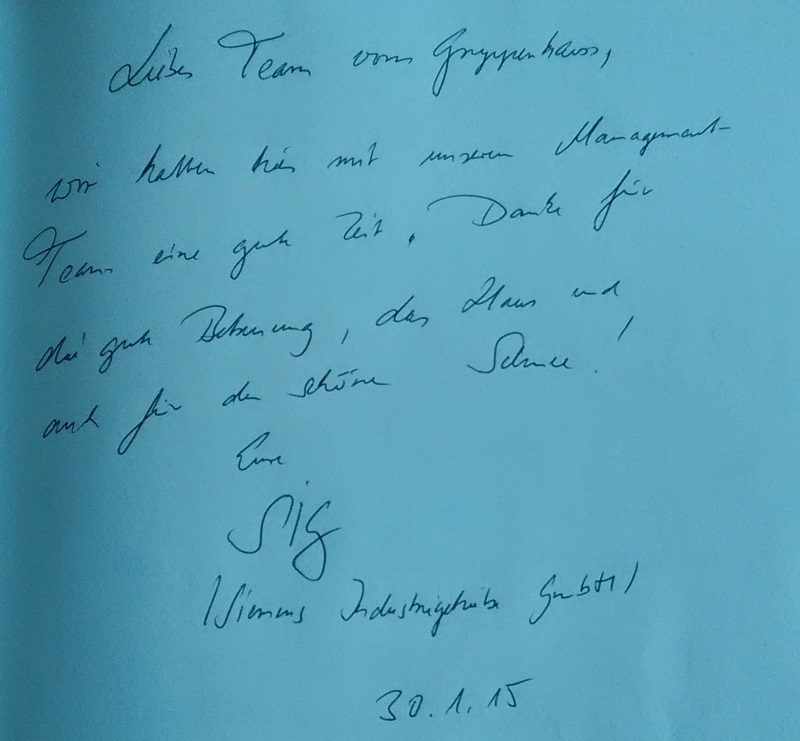 Liebes Team vom Gruppenhaus,
wir hatten hier mit unserem Management-
Team eine gute Zeit. Danke für
die gute Betreuung, das Haus und
auch für den schönen Schnee!
Eure
SIG
(Siemens Industriegetriebe GmbH)
30.1.15